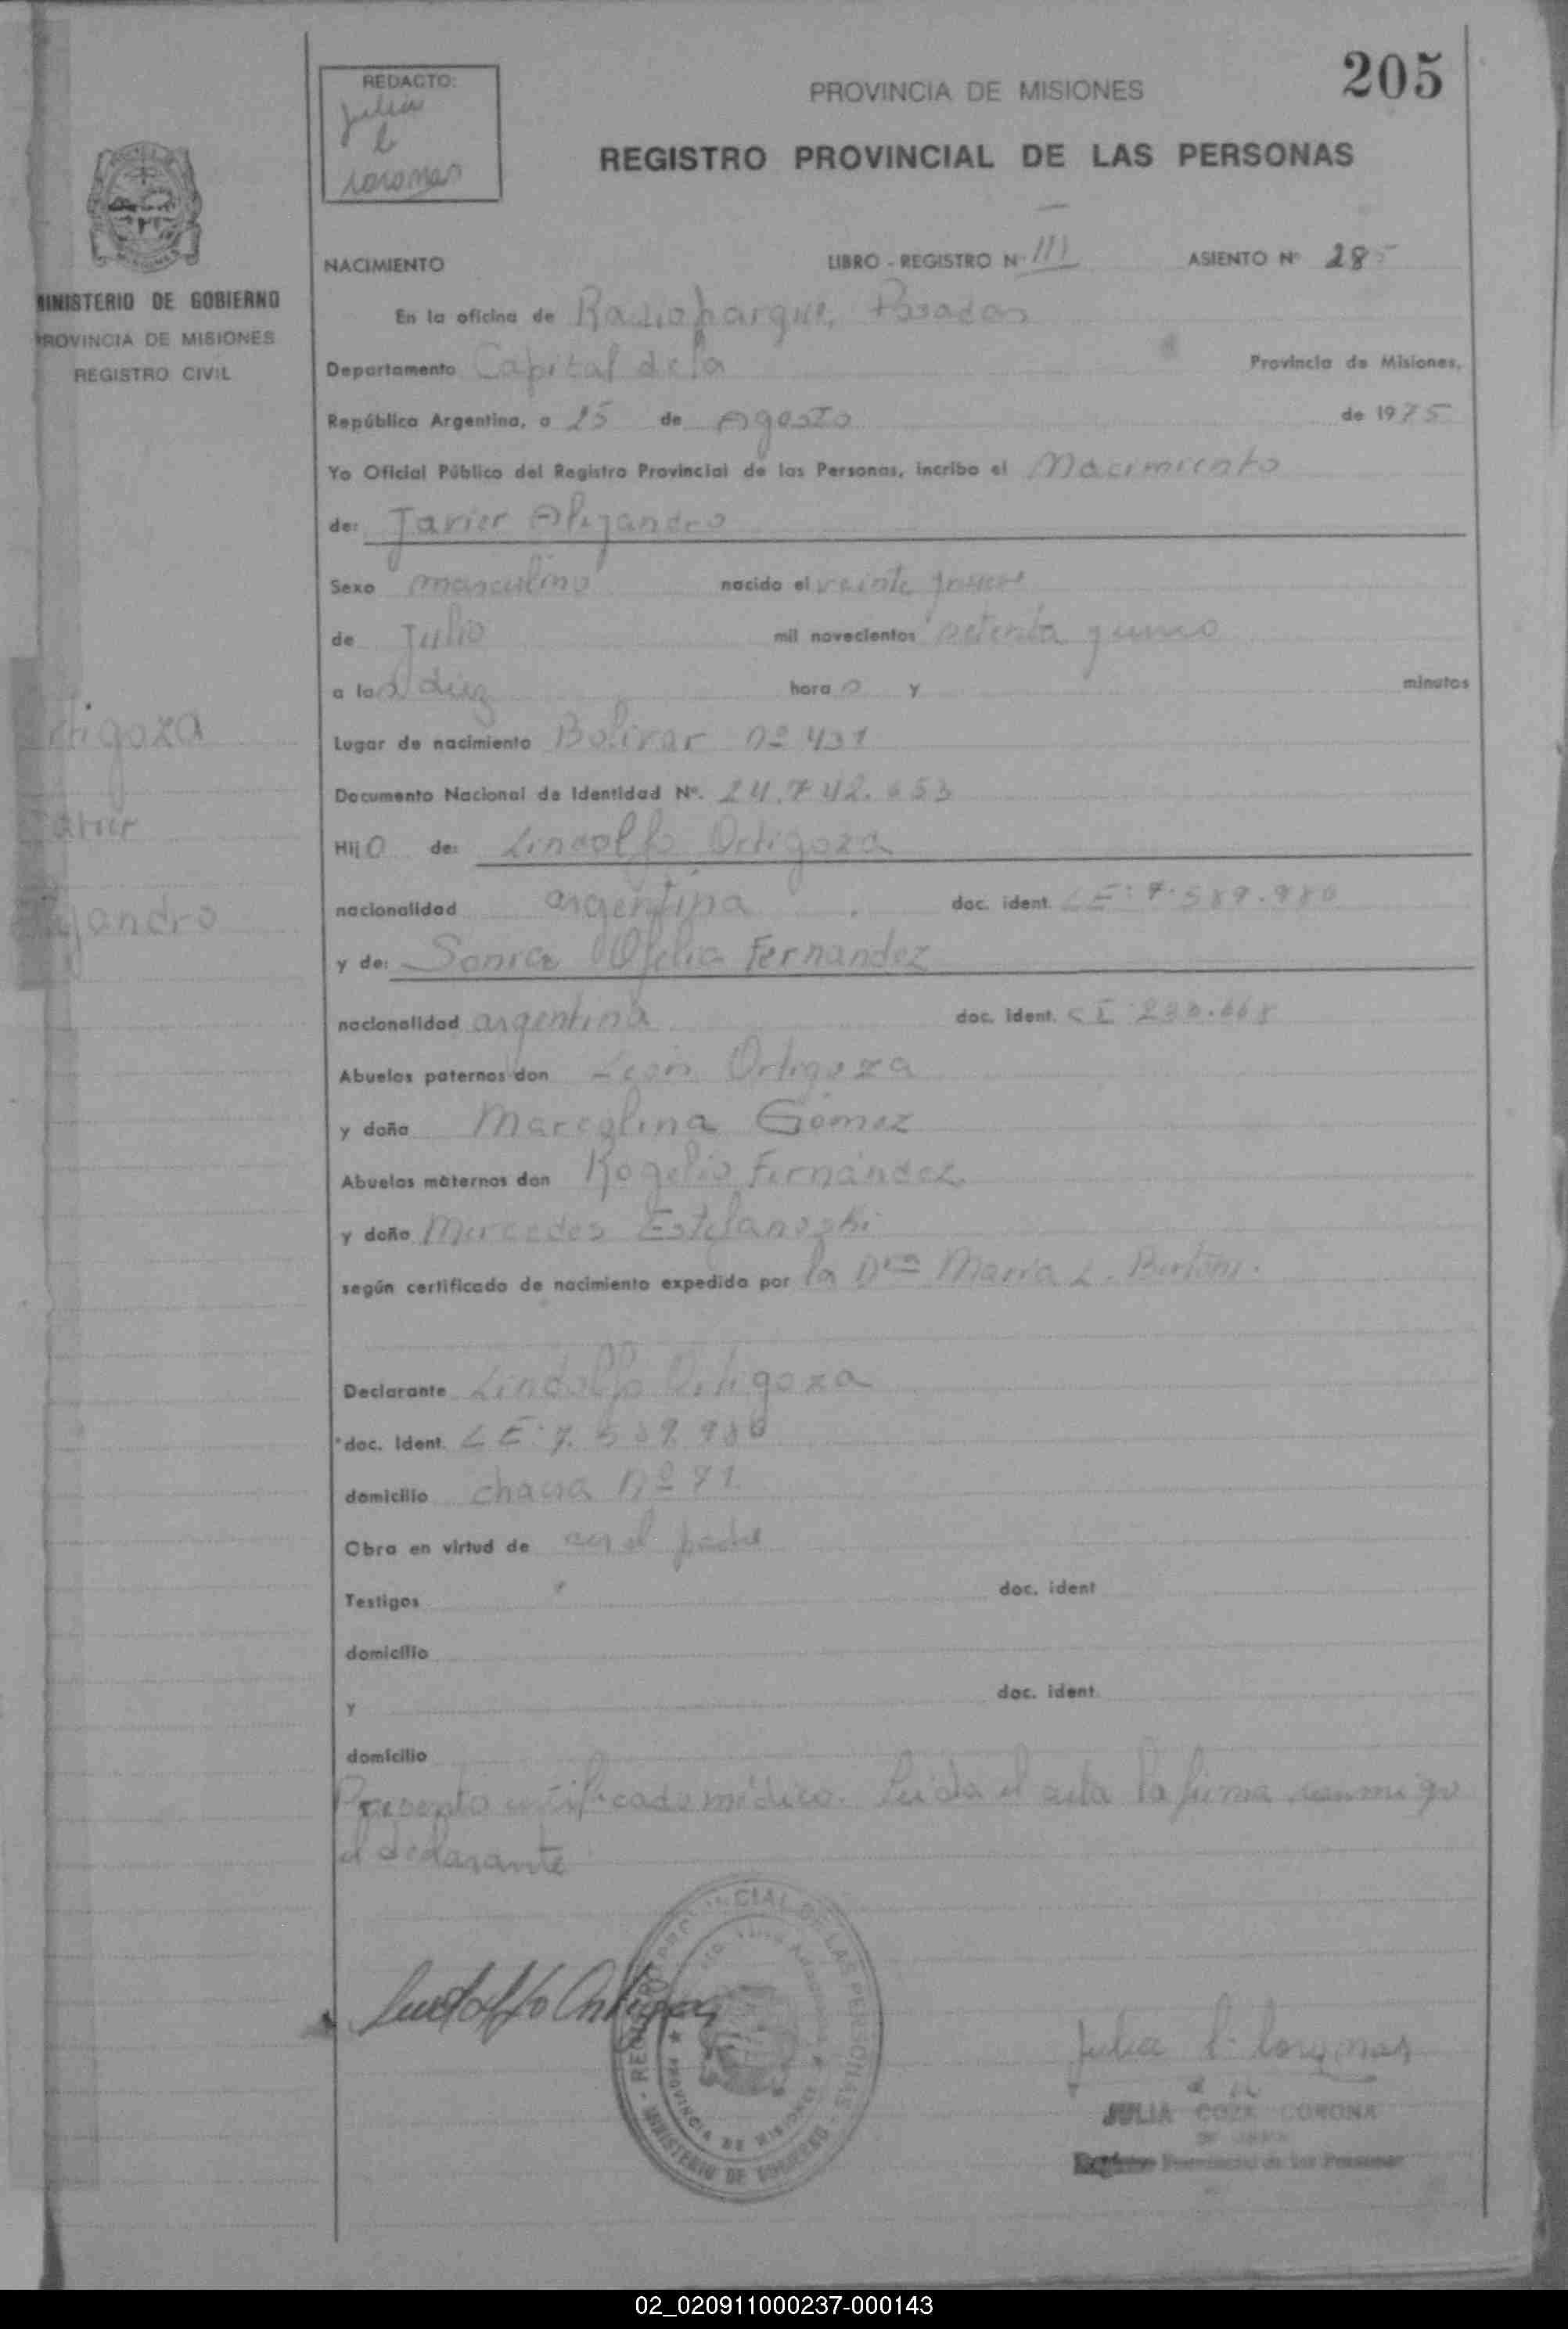 205
REDACTO:
Julia
PROVINCIA DE MISIONES
REGISTRO PROVINCIAL DE LAS PERSONAS
MINISTERIO DE GOBIERNO
PROVINCIA DE MISIONES
REGISTRO CIVIL
NACIMIENTO LIBRO - REGISTRO Nº III ASIENTO Nº 285
En la oficina de Posadas
Departamento Capital de la Provincia de Misiones,
República Argentina, a 25 de Agosto de 1975
Yo Oficial Público del Registro Provincial de las Personas, incribo el Nacimiento
de: Javier Alejandro
Sexo masculino nacido el veinte
de Julio mil novecientos setenta y cinco
a las diez horas y minutos
Lugar de nacimiento Bolivar nº 431
Documento Nacional de Identidad Nº. 24.742.653
Hijo de: Lindolfo Ortigoza
nacionalidad argentina doc. ident. LE: 7.589.980
y de: Sonia Ofelia Fernandez
nacionalidad argentina doc. ident. CI
Abuelos paternos don León Ortigoza
y doña Marcelina Gómez
Abuelos maternos don Rogelio Fernández
y doña Mercedes Estefanoski
según certificado de nacimiento expedido por la Dra Maria L. Bertoni.
Declarante Lindolfo Ortigoza
doc. Ident. LE: 7.589.980
domicilio chacra Nº 71
Obra en virtud de ser el padre
Testigos doc. ident
domicilio
y doc. ident.
domicilio
Presento certificado médico. Leida el acta la firma conmigo
el declarante
Ortigoza
Javier
Alejandro
Lindolfo Ortigoza
REGISTRO PROVINCIAL DE LAS PERSONAS
MINISTERIO DE GOBIERNO
PROVINCIA DE MISIONES
Julia
JULIA CORONA
Registro Provincial de las Personas
02_020911000237-000143